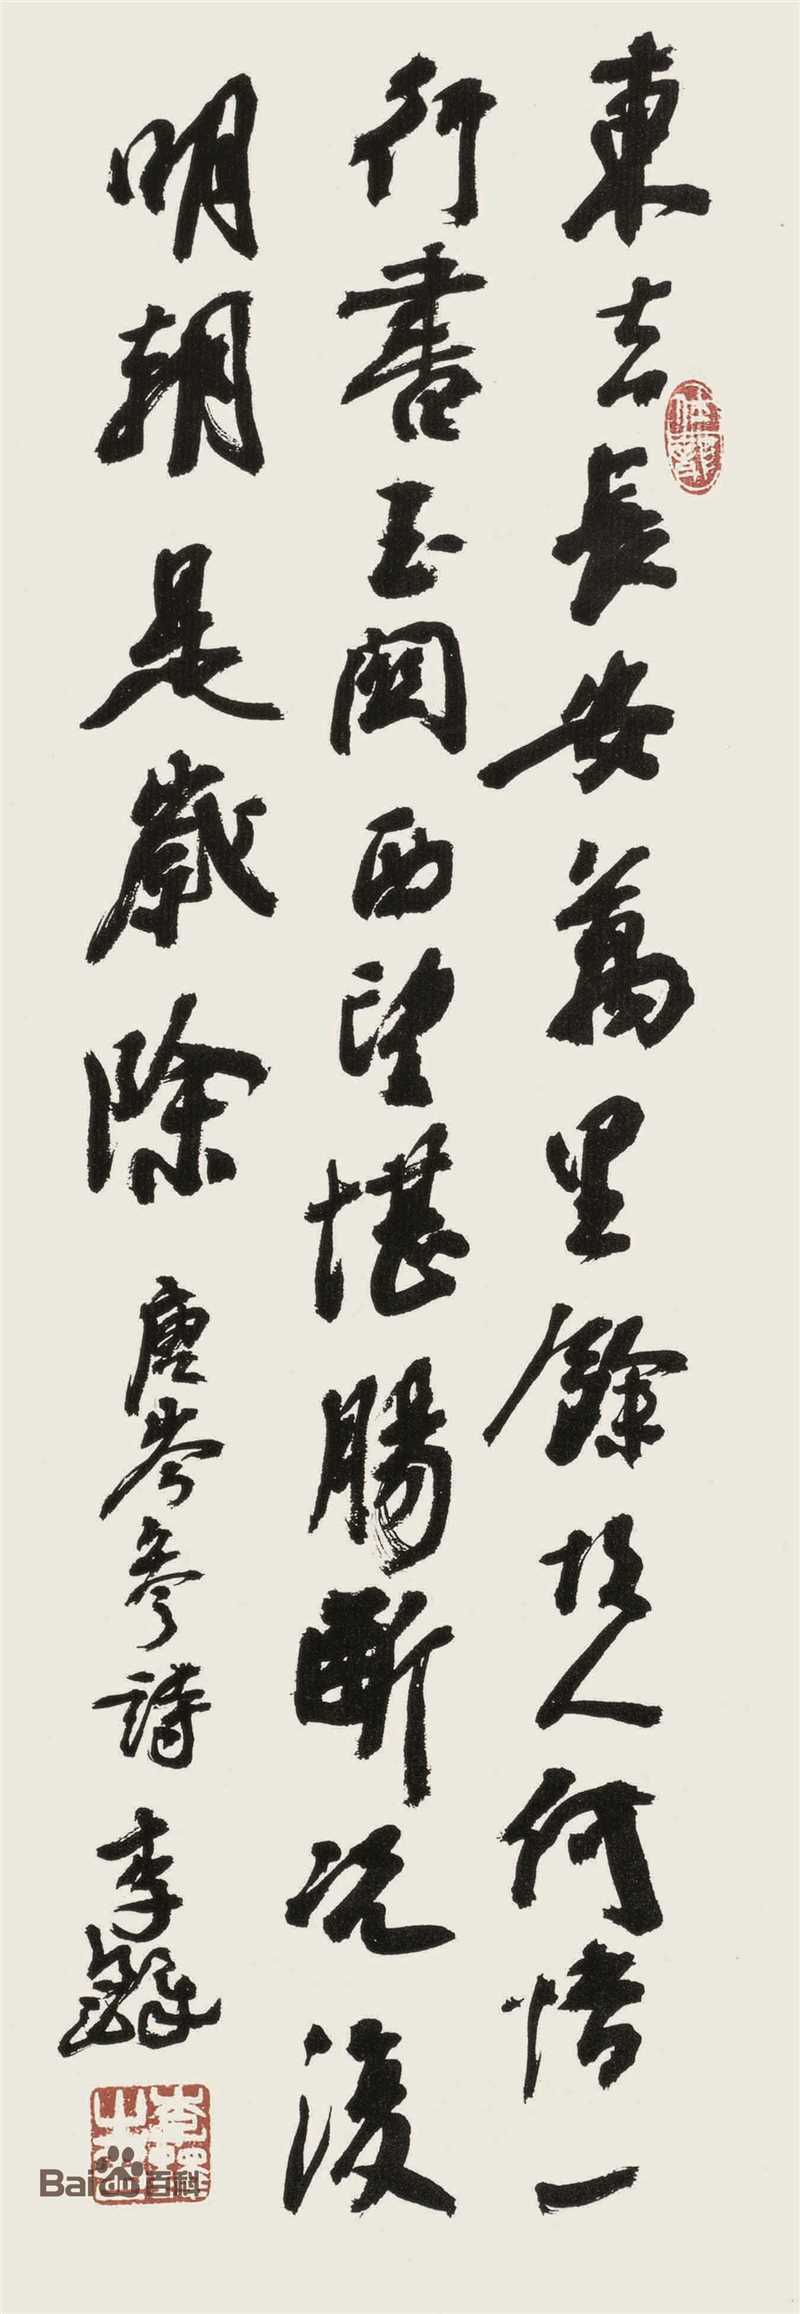 東去長安萬里餘故人何惜一
行書玉関西望堪腸断况復
明朝是歳除
唐岑参詩 李鐸
Baidu百科